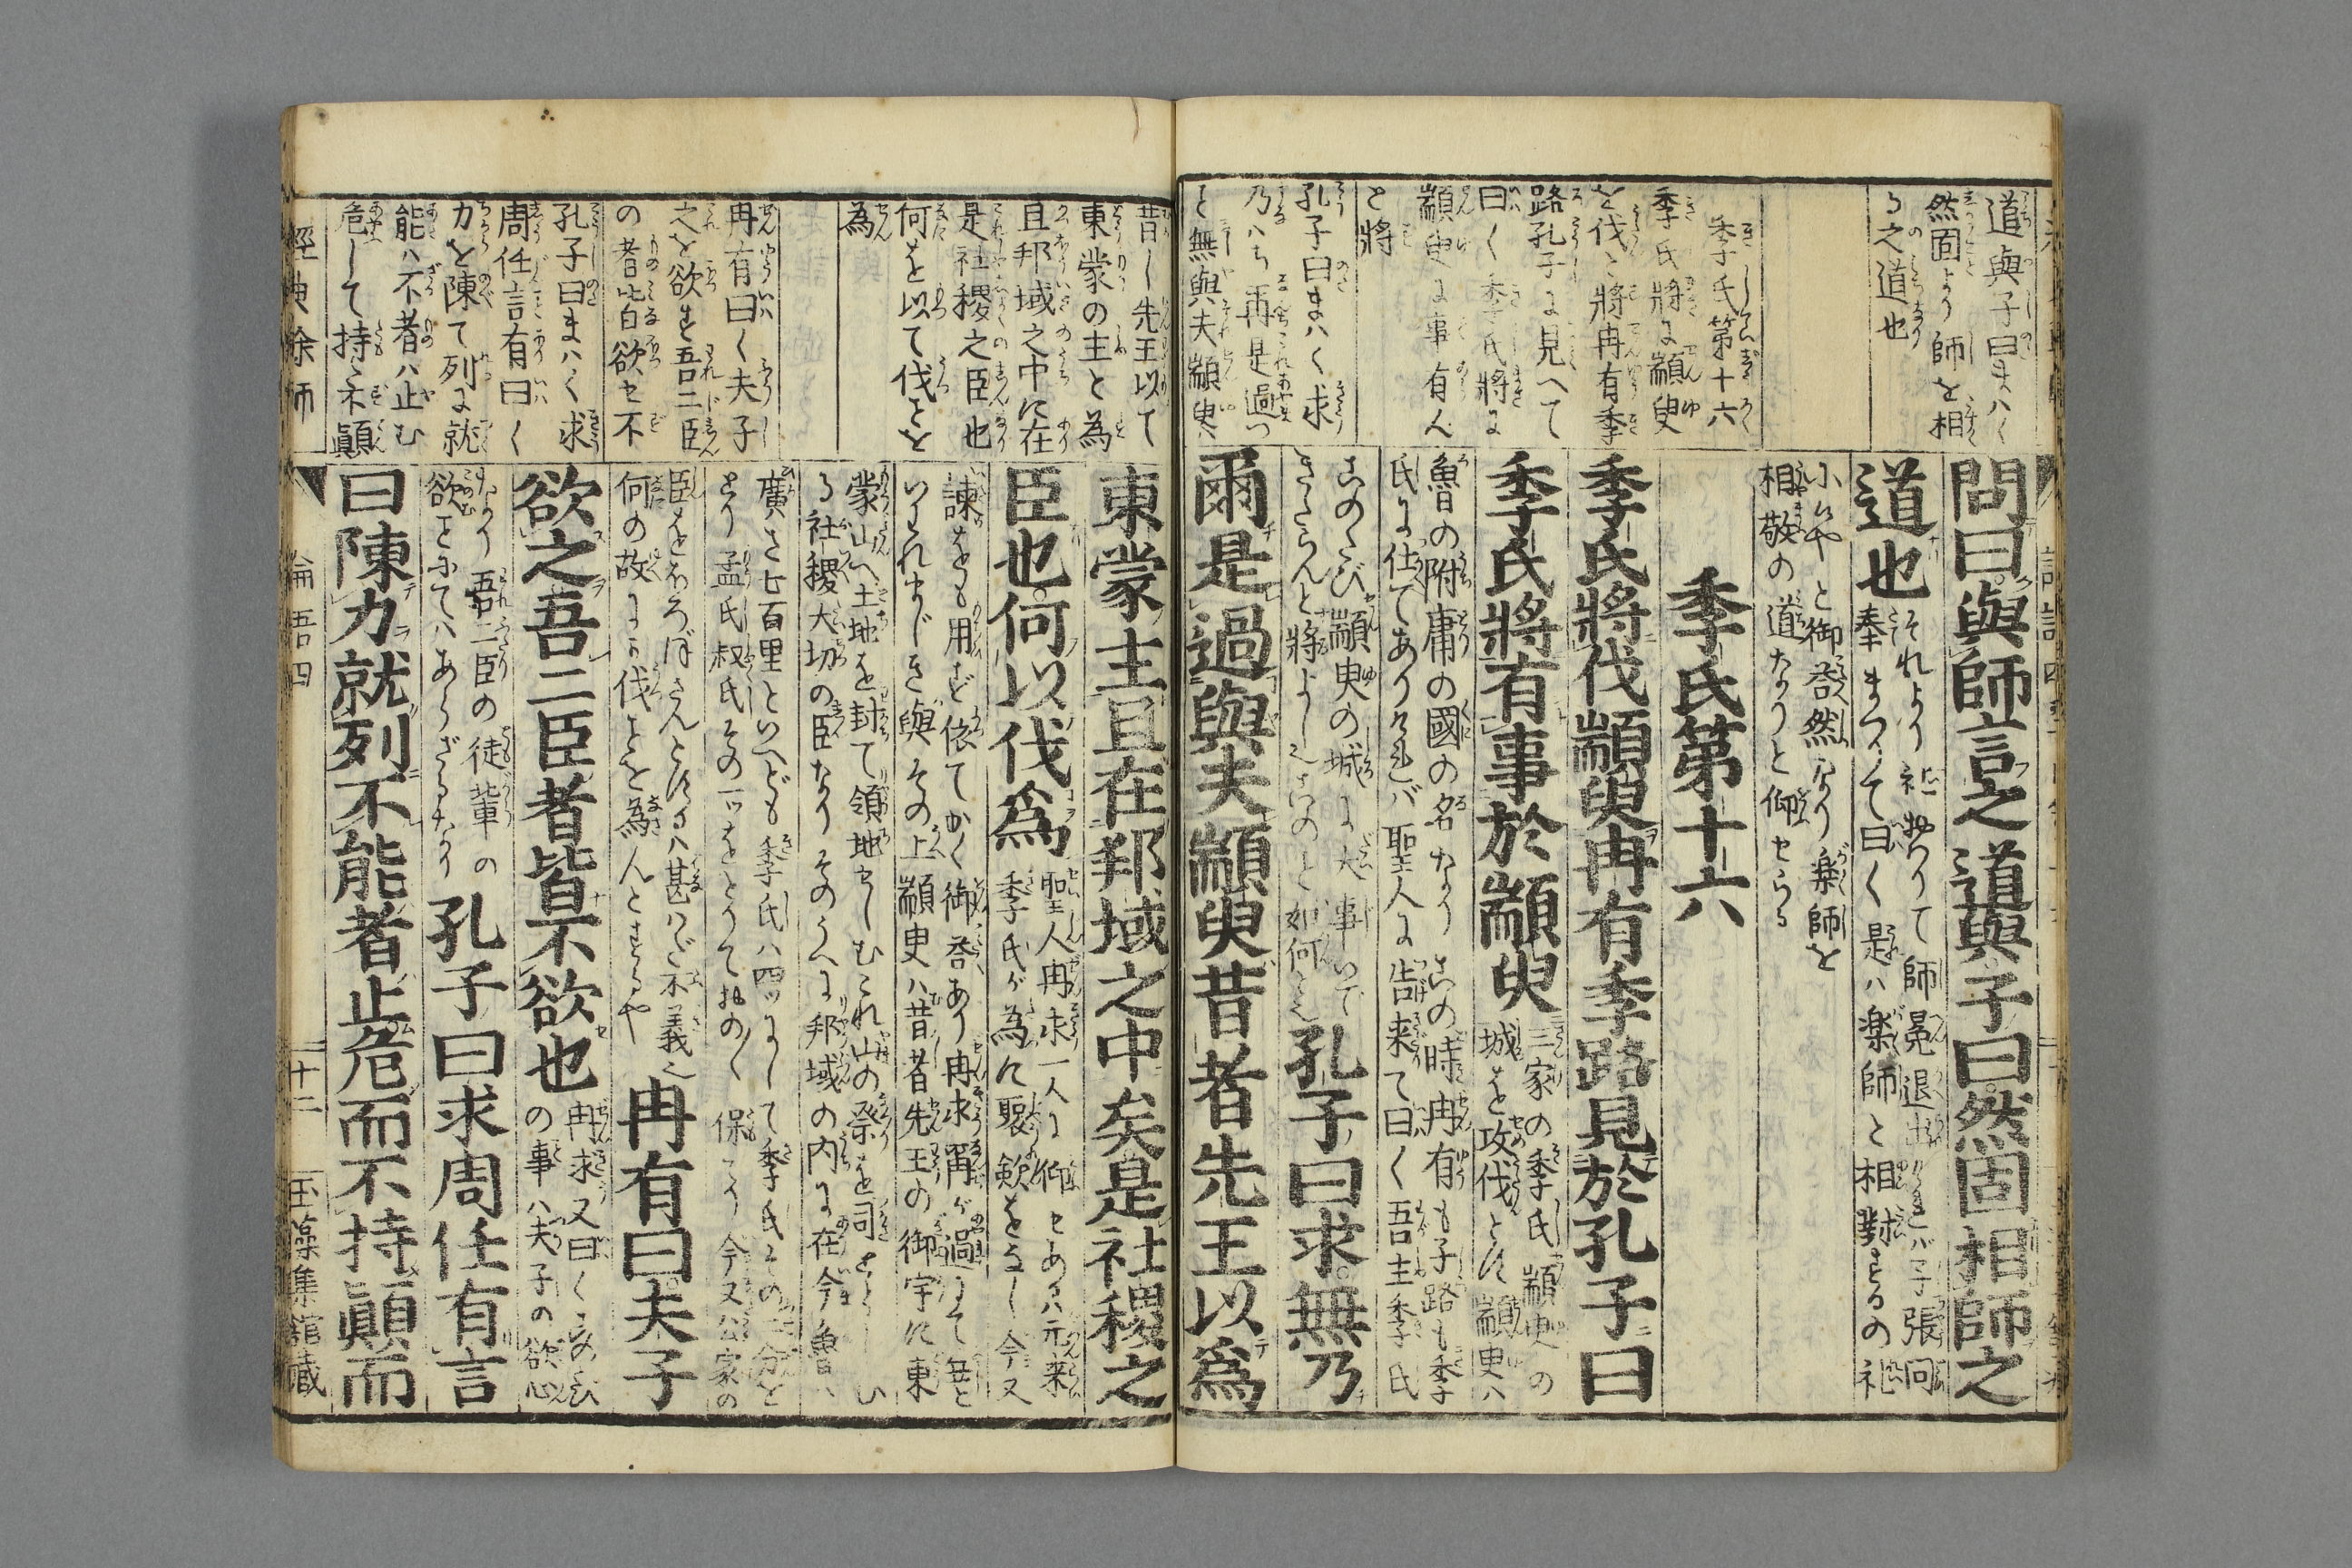 道與子曰まハく
然固より師を相
る之道也
季氏第十六
季氏將に顓臾
を伐と將冉有季
路孔子に見へて
曰く季氏將に
顓臾に事有ん
と將
孔子曰まハく求
乃ハち再是過つ
と無與夫顓臾
問曰與師言之道與子曰然固相師之
道也
それより
師冕退出
子張問
奉まつりて曰く是ハ楽師と相對するの礼
相敬の道なりと仰せらる
季氏第十六
季氏將伐顓臾冉有季路見於孔子曰
季氏將有事於顓臾
三家の季氏顓臾の
城を攻伐とす顓臾ハ
魯の附庸の國の名なりこの時冉有も子路も季
氏に仕てありけれバ聖人に告来て曰く吾主季氏
このたび顓臾の城に大事いで
きたらんと將
孔子曰求無乃
爾是過與夫顓臾昔者先王以爲
昔し先王以て
東蒙の主と為
且邦域之中に在
是社稷之臣也
何を以て伐とを
為
冉有曰く夫子
之を欲す吾二臣
の者皆欲せ不
孔子曰まハく求
周任言有曰く
力を陳て列に就
能ハ不者ハ止む
危して持不顛
東蒙主且在邦域之中矣是社稷之
臣也何以伐爲
聖人冉求一人に仰せあるハ元来
季氏が為に聚歛をなし今又
諫をも用ず依てかく御咎あり冉求爾が過にて無と
いわれまじき與その上顓臾ハ昔者先王の御宇に東
蒙山へ土地を封て領地せしむこれ山の祭を司どらし
る社稷大切の臣なりそのうへに邦域の内に在今魯ハ
廣さ七百里といへども季氏ハ四ッにして季氏その二分を
とり孟氏叔氏その一ッをとりておのく保てり今又公家の
臣をほろぼさんとするハ甚ハだ不義也
何の故にか伐とを為んとするや
冉有曰夫子
欲之吾二臣者皆不欲也
冉求又曰くこのたび
の事ハ夫子の欲心
なり吾二臣の徒輩の
欲とにてハあらざるなり
孔子曰求周任有言
曰陳力就列不能者止危而不持顛而
經典余師
論語四
十二
玉藻集館藏